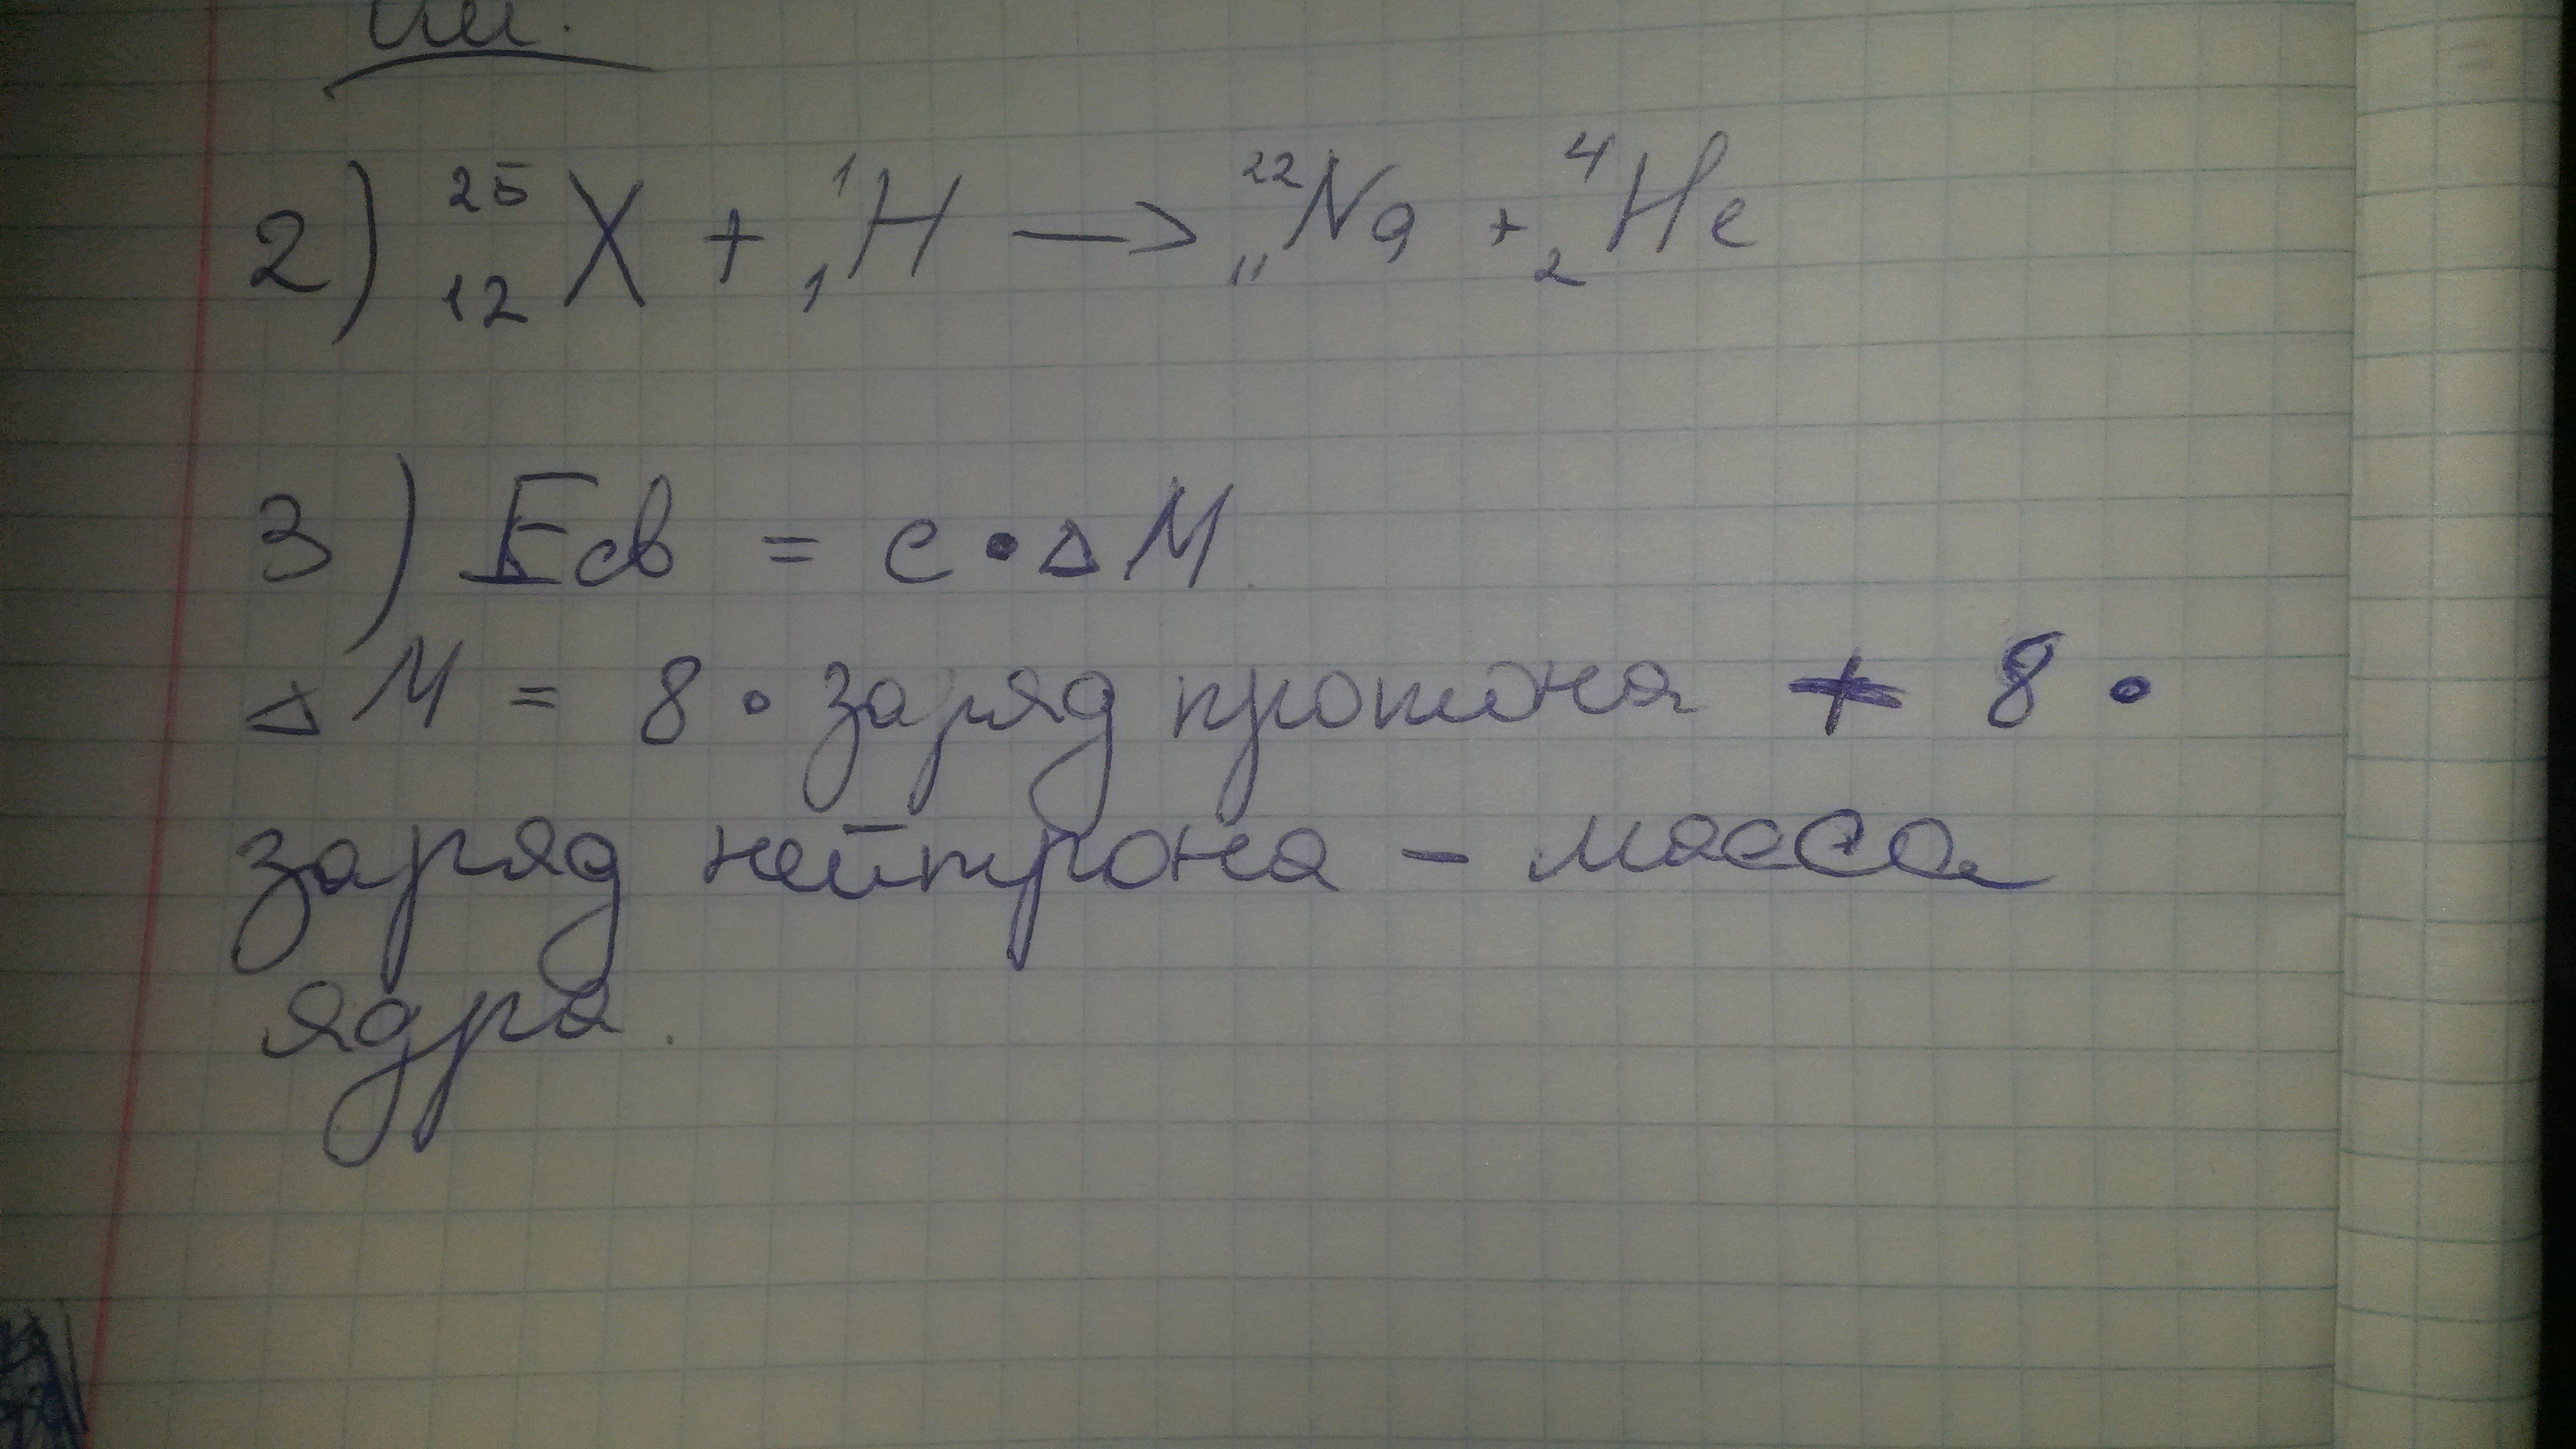 2) ²⁵₁₂X + ¹₁H → ²²₁₁Na + ⁴₂He
3) Eсв = c • Δ M
Δ M = 8 • заряд протона + 8 •
заряд нейтрона – масса
ядра.